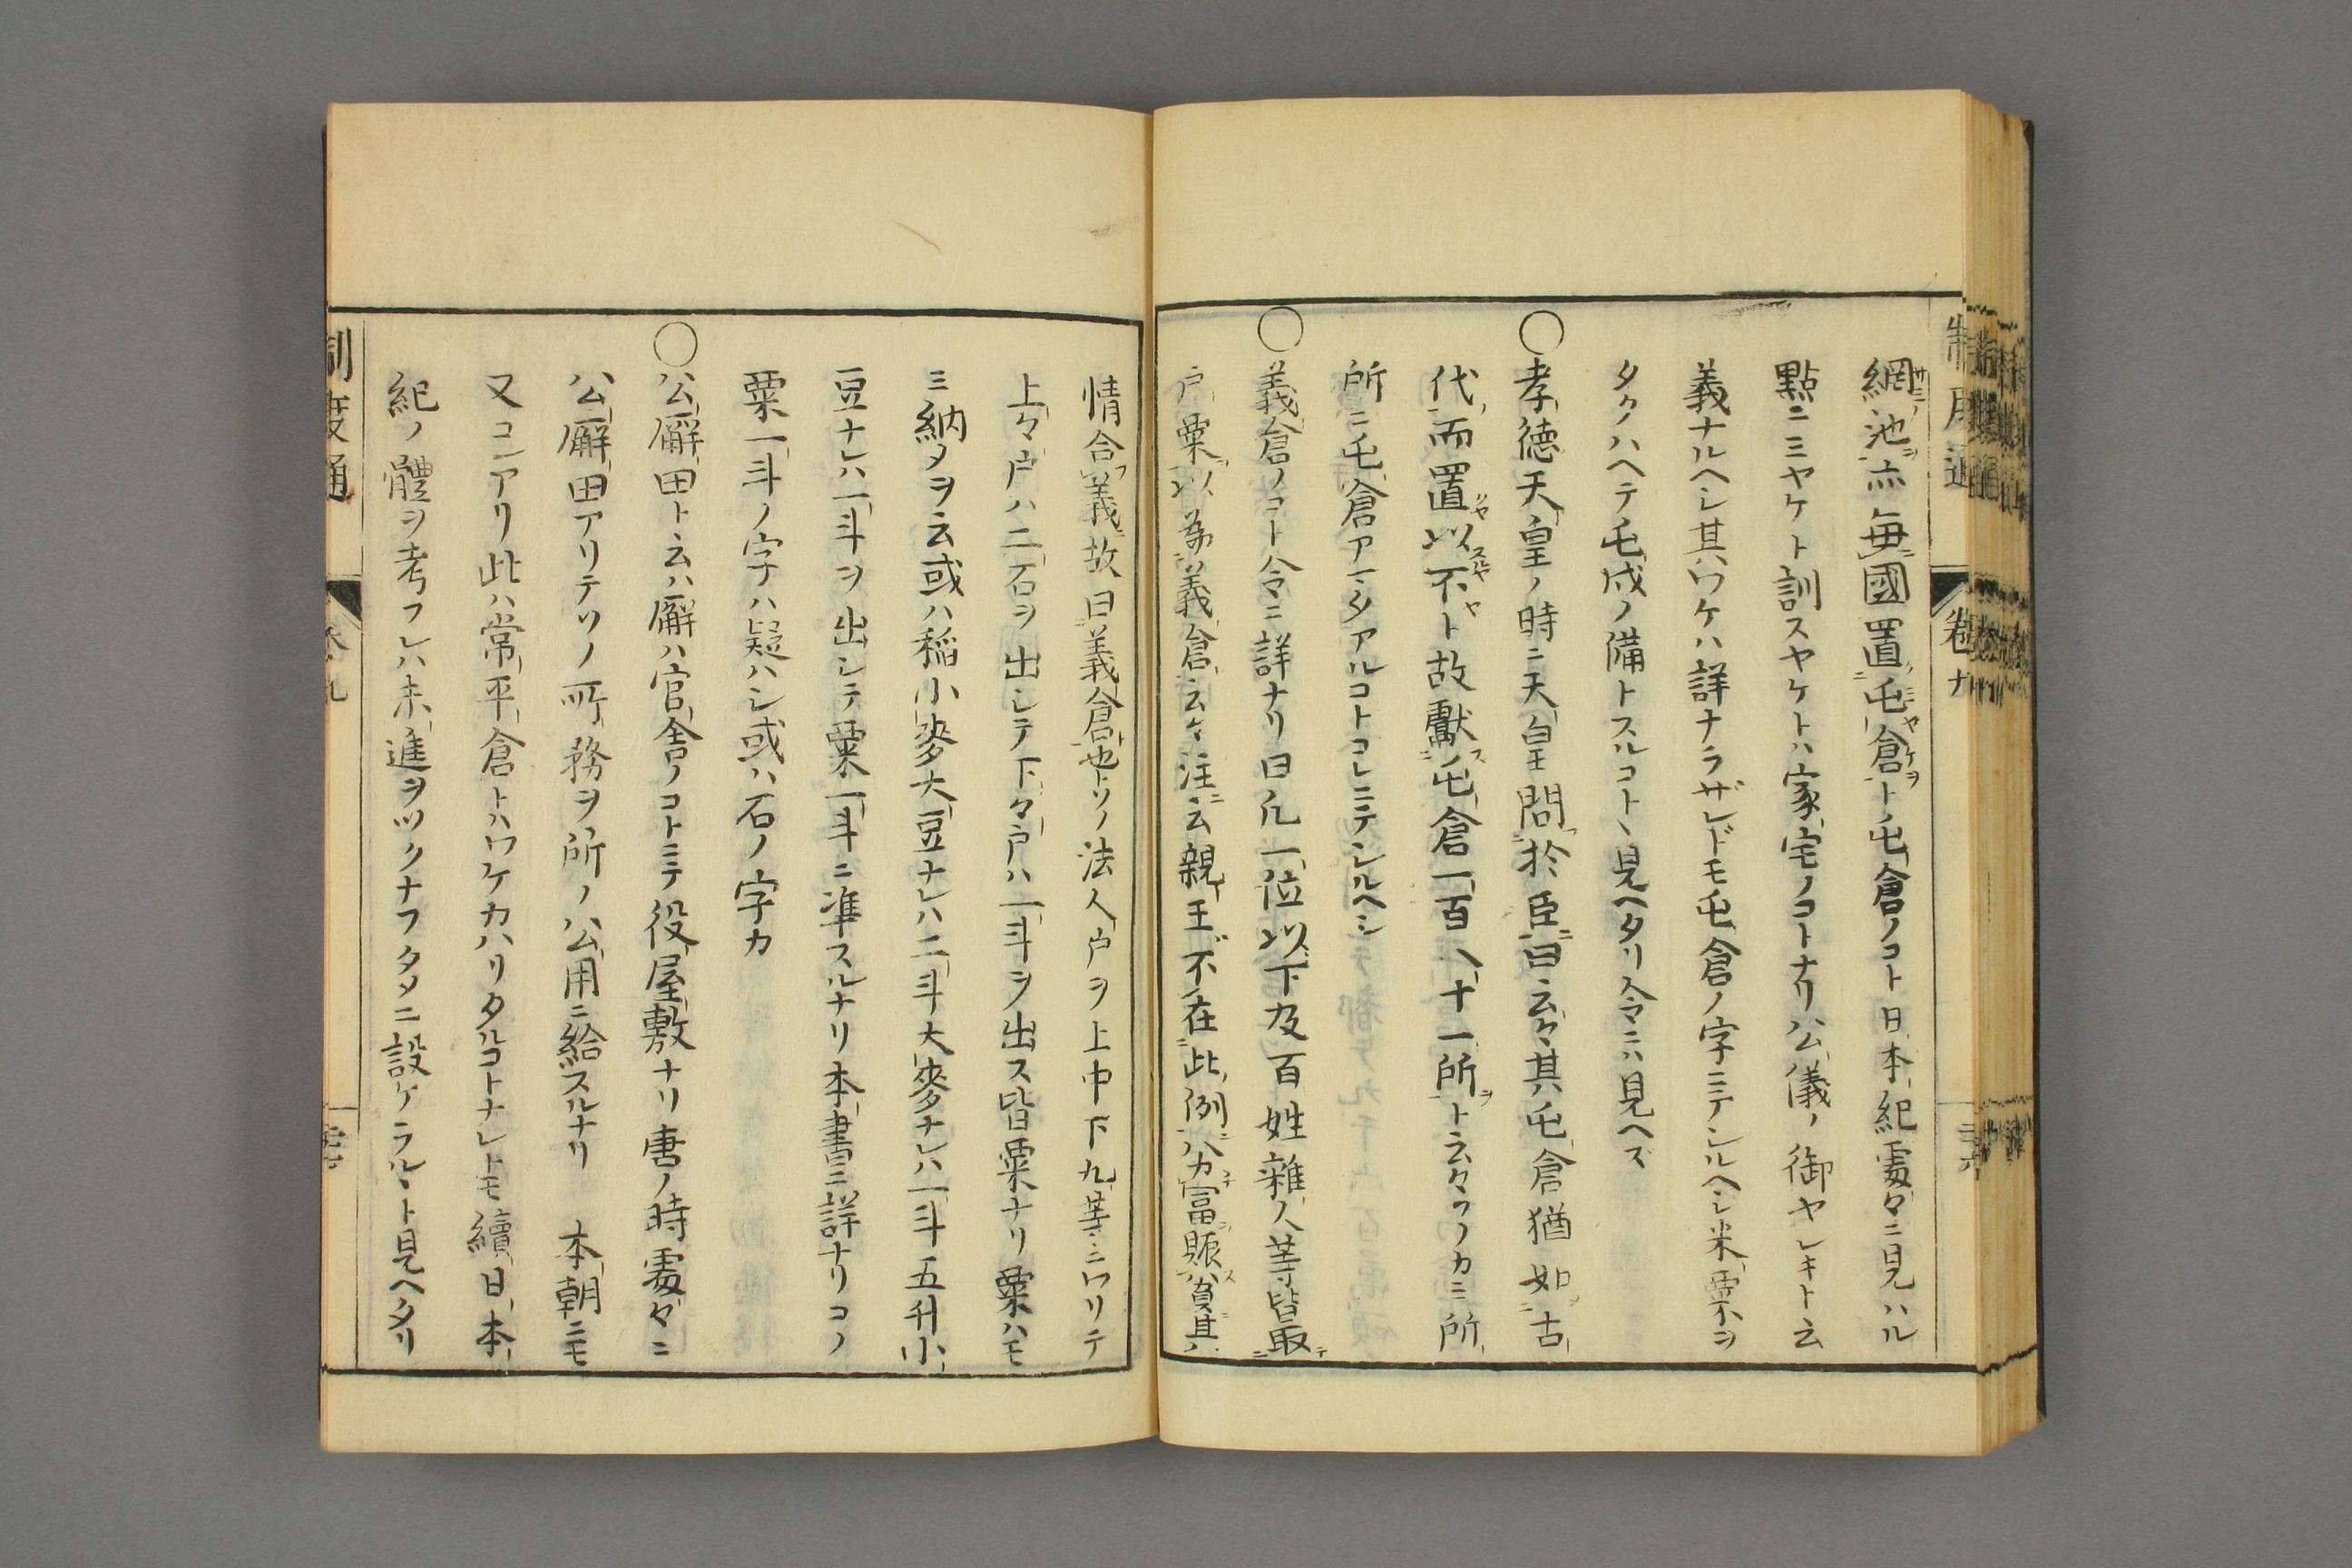 網池亦毎國置屯倉ト屯倉ノコト日本紀處々ニ見ハル
點ニミヤケト訓スヤケトハ家宅ノコトナリ公儀ノ御ヤシキト云
義ナルヘシ其ワケハ詳ナラザレドモ屯倉ノ字ニテシルヘシ米粟ヲ
タクハヘテ屯戍ノ備トスルコトヽ見ヘタリ令ニハ見ヘズ
○孝德天皇ノ時ニ天皇問於臣曰云々其屯倉猶如古
代而置以不ト故獻屯倉一百八十一所ト云々ワツカニ所
所ニ屯倉アマタアルコトコレニテシルヘシ
○義倉ノコト令ニ詳ナリ曰凡一位以下及百姓雜人等皆取
戸粟以為義倉云々注云親王不在此例分富賑貧其
情合義故曰義倉也トソノ法人戸ヲ上中下九等ニワリテ
上々戸ハ二石ヲ出シテ下々戸ハ一斗ヲ出ス皆粟ナリ粟ハモ
ミ納メヲ云或ハ稲小麥大豆ナレハ二斗大麥ナレハ一斗五升小
豆ナレハ一斗ヲ出シテ粟一斗ニ準スルナリ本書ニ詳ナリコノ
粟一斗ノ字ハ疑ハシ或ハ石ノ字カ
○公廨田ト云ハ廨ハ官舎ノコトニテ役屋敷ナリ唐ノ時處々ニ
公廨田アリテソノ所務ヲ所ノ公用ニ給スルナリ　本朝ニモ
又コレアリ此ハ常平倉トハワケカハリタルコトナレトモ續日本
紀ノ體ヲ考フレハ未進ヲツクナフタメニ設ケラルヽト見ヘタリ
制度通
卷九